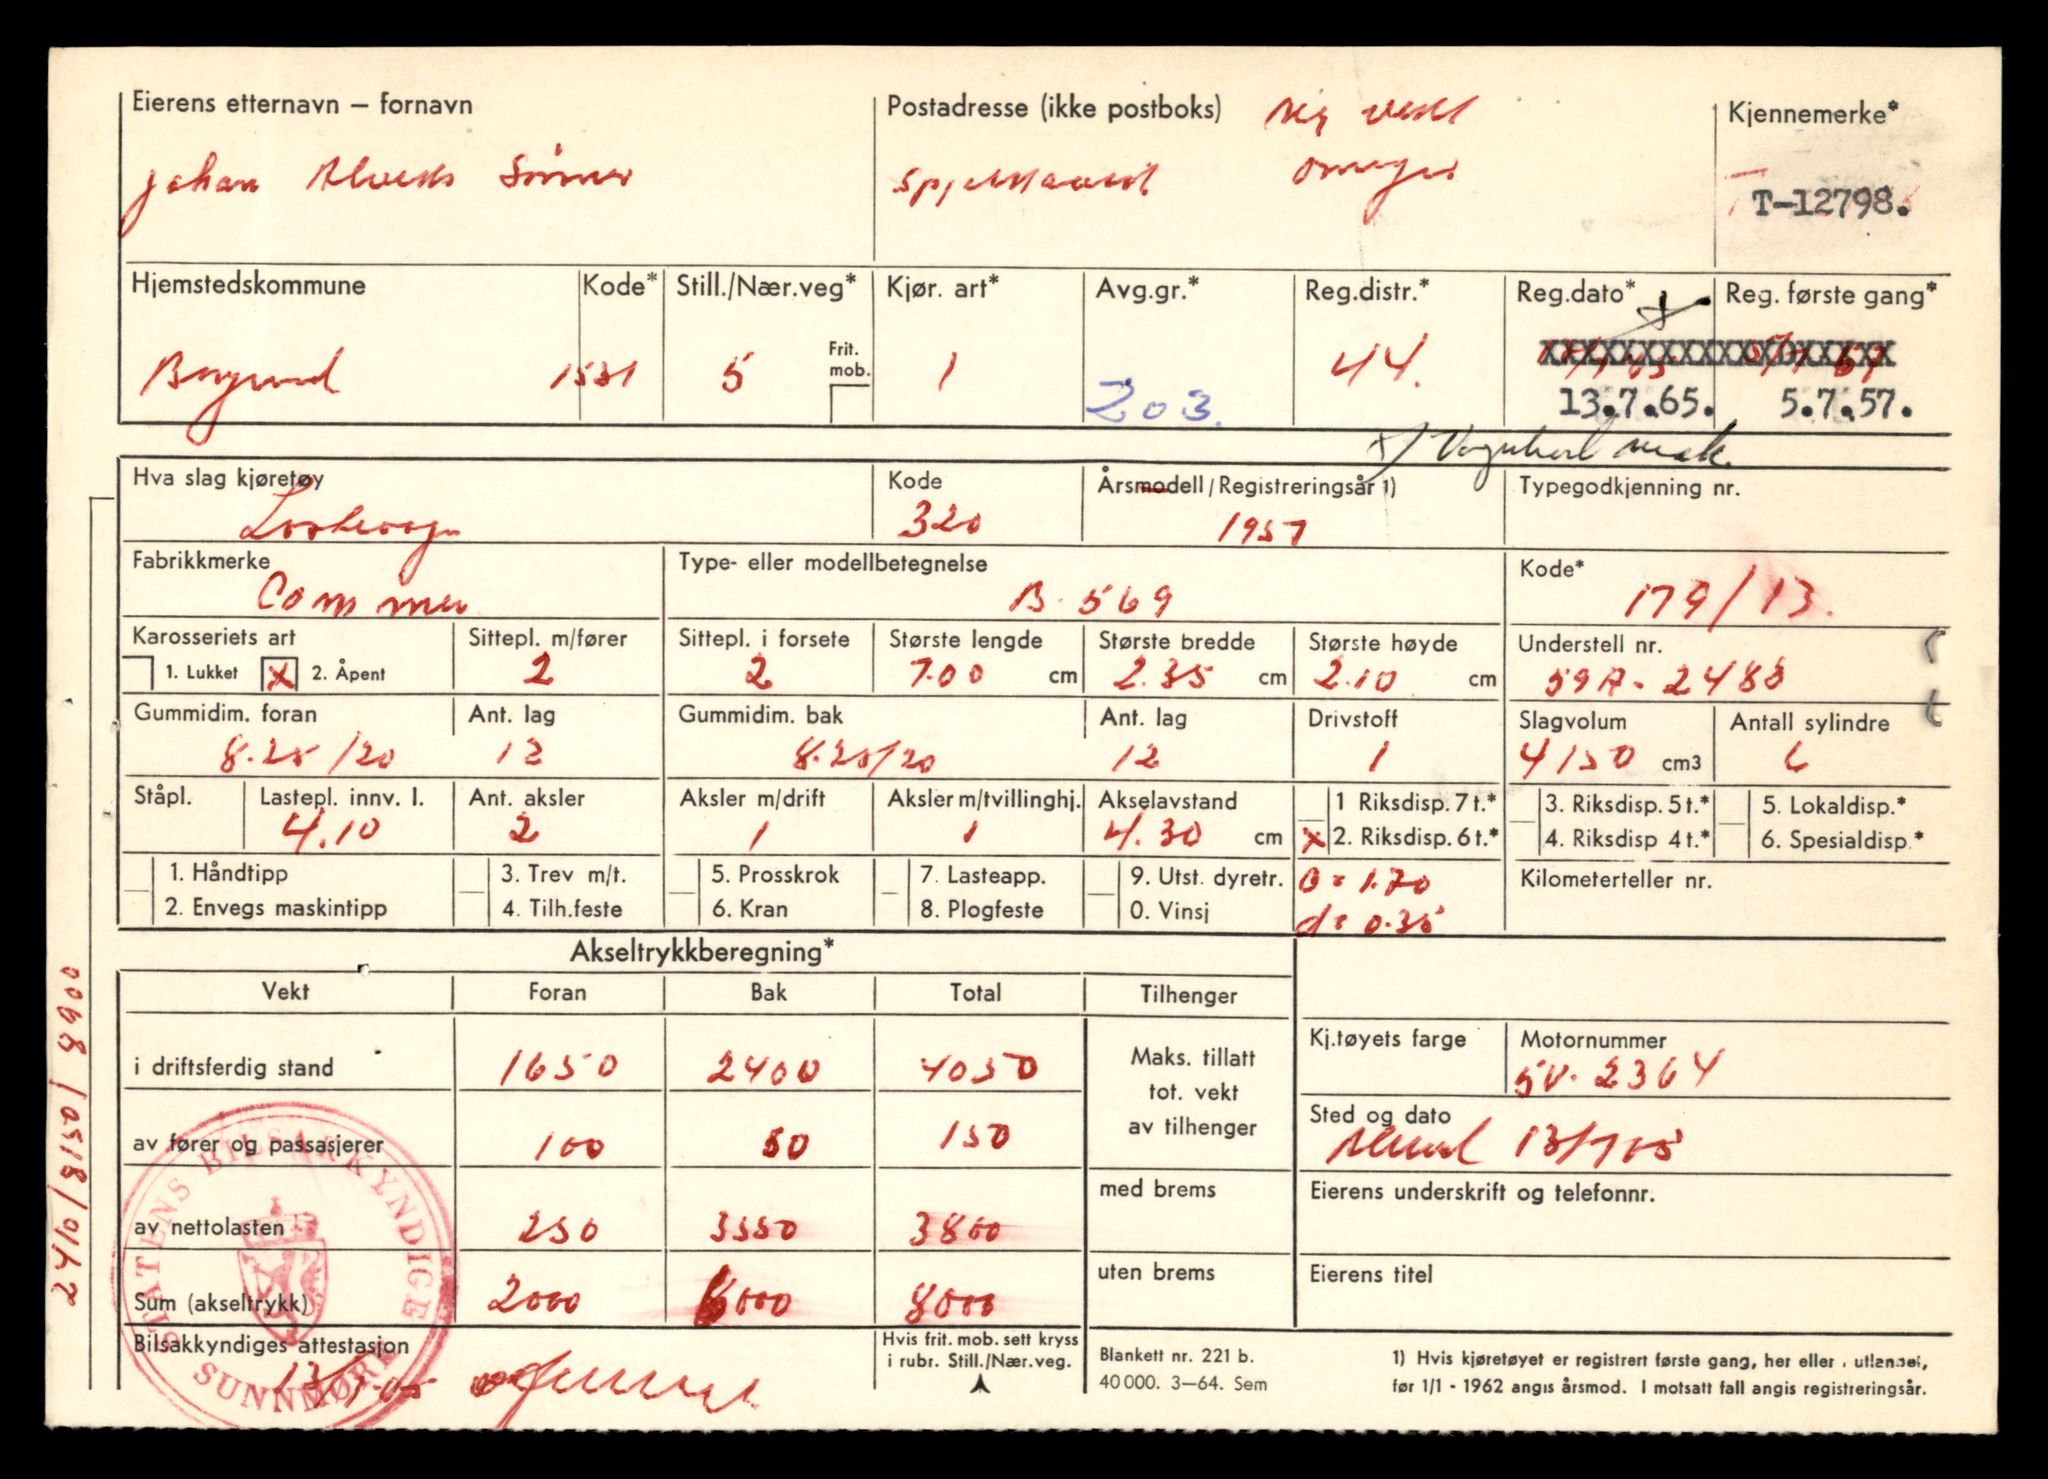 Eierens etternavn – fornavn
Johan Alvestads Sønner
Postadresse (ikke postboks)
Spjelkavik
Kjennemerke*
T-12798.
Hjemstedskommune
Borgund
Kode*
1531
Still./Nær.veg*
5
Frit. mob.
Kjør. art*
1
Avg.gr.*
203.
Reg.distr.*
44.
Reg.dato*
13.7.65.
Reg. første gang*
5.7.57.
Hva slag kjøretøy
Lastevogn
Kode
320
Årsmodell/Registreringsår 1)
1957
Typegodkjenning nr.
Fabrikkmerke
Commer
Type- eller modellbetegnelse
B. 569
Kode*
179/13.
Karosseriets art
1. Lukket x 2. Åpent
Sittepl. m/fører
2
Sittepl. i forsete
2
Største lengde
7.00 cm
Største bredde
2.35 cm
Største høyde
2.10 cm
Understell nr.
59A-2488
Gummidim. foran
8.25/20
Ant. lag
12
Gummidim. bak
8.25/20
Ant. lag
12
Drivstoff
1
Slagvolum
4150 cm3
Antall sylindre
6
Ståpl.
Lastepl. innv. l.
4.10
Ant. aksler
2
Aksler m/drift
1
Aksler m/tvillinghj.
1
Akselavstand
4.30 cm
1 Riksdisp. 7 t.*
x 2. Riksdisp. 6 t.*
3. Riksdisp. 5 t.*
4. Riksdisp 4 t.*
5. Lokaldisp.*
6. Spesialdisp.*
1. Håndtipp
2. Envegs maskintipp
3. Trev m/t.
4. Tilh.feste
5. Prosskrok
6. Kran
7. Lasteapp.
8. Plogfeste
9. Utst. dyretr.
0. Vinsj
0 = 1.70
d = 0.35
Kilometerteller nr.
Akseltrykkberegning*
Vekt Foran Bak Total Tilhenger
i driftsferdig stand 1650 2400 4050
av fører og passasjerer 100 50 150
av nettolasten 250 3550 3800
Sum (akseltrykk) 2000 6000 8000
Maks. tillatt
tot. vekt
av tilhenger
med brems
uten brems
Kj.tøyets farge
Motornummer
5V. 2364
Sted og dato
13/7 65
Eierens underskrift og telefonnr.
Eierens titel
Bilsakkyndiges attestasjon
13/7-65
Hvis frit. mob. sett kryss
i rubr. Still./Nær.veg.
Blankett nr. 221 b.
40 000. 3—64. Sem
1) Hvis kjøretøyet er registrert første gang, her eller i utlandet,
før 1/1 - 1962 angis årsmod. I motsatt fall angis registreringsår.
STATENS BILSAKKYNDIGE
SUNNMØRE
2410/8150/8900